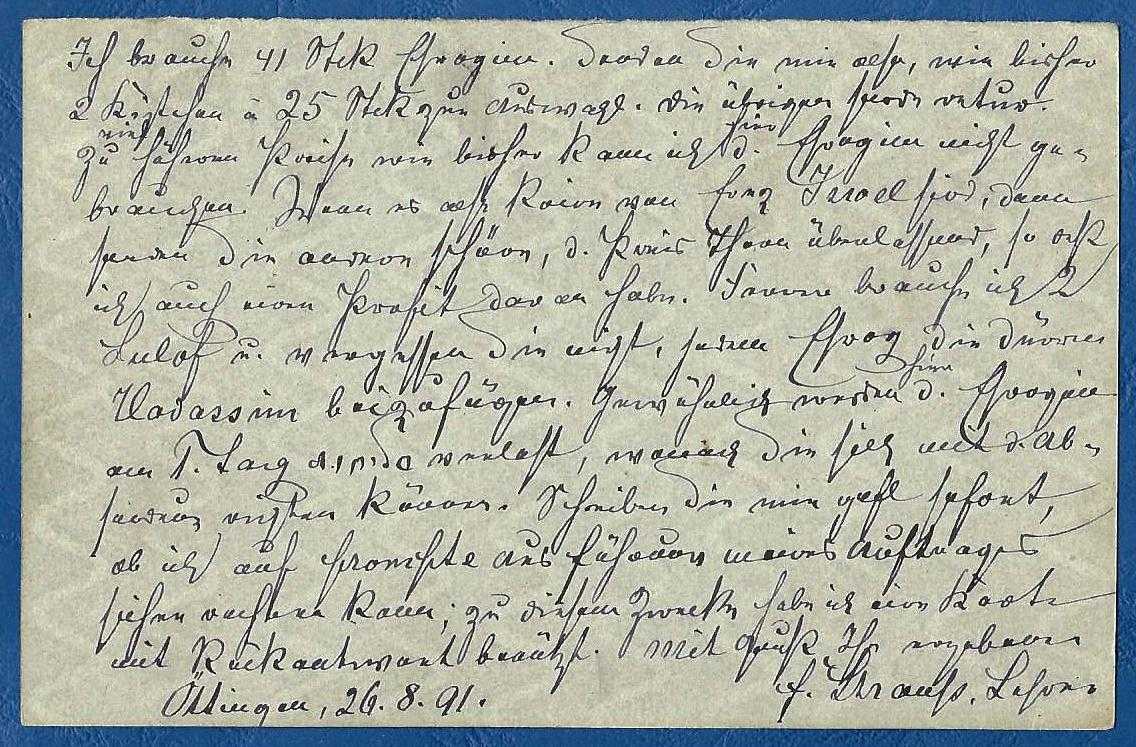 Ich brauche 41 Stck Esrogim. Senden Sie mir also, wie bisher
2 Kistchen à 25 Stck zur Auswahl. Die übrigen sende retur.
viel
Zu höheren Preise wie bisher kann ich d. Esrogim nicht ge-
hier
brauchen. Wenn es also keine von Erez Isroel sind, dann
senden Sie andere schöne, d. Preis Ihnen überlassend, so daß
ich auch einen Profit daran habe. Ferner brauche ich 2
Lulof u. vergessen Sie nicht, jedem Esrog die dürren
Hadassim beizufügen. Gewöhnlich werden d. Esrogim
hier
am 1. Tag verlost, wonach Sie sich mit d. Ab-
sendung richten können. Schreiben Sie mir gefl sofort,
ob ich auf prompte Ausführung meines Auftrages
sicher rechnen kann; zu diesem Zwecke habe ich eine Karte
mit Rückantwort benützt. Mit Gruß Ihr ergebener
Öttingen, 26.8.91. Strauss, Lehrer